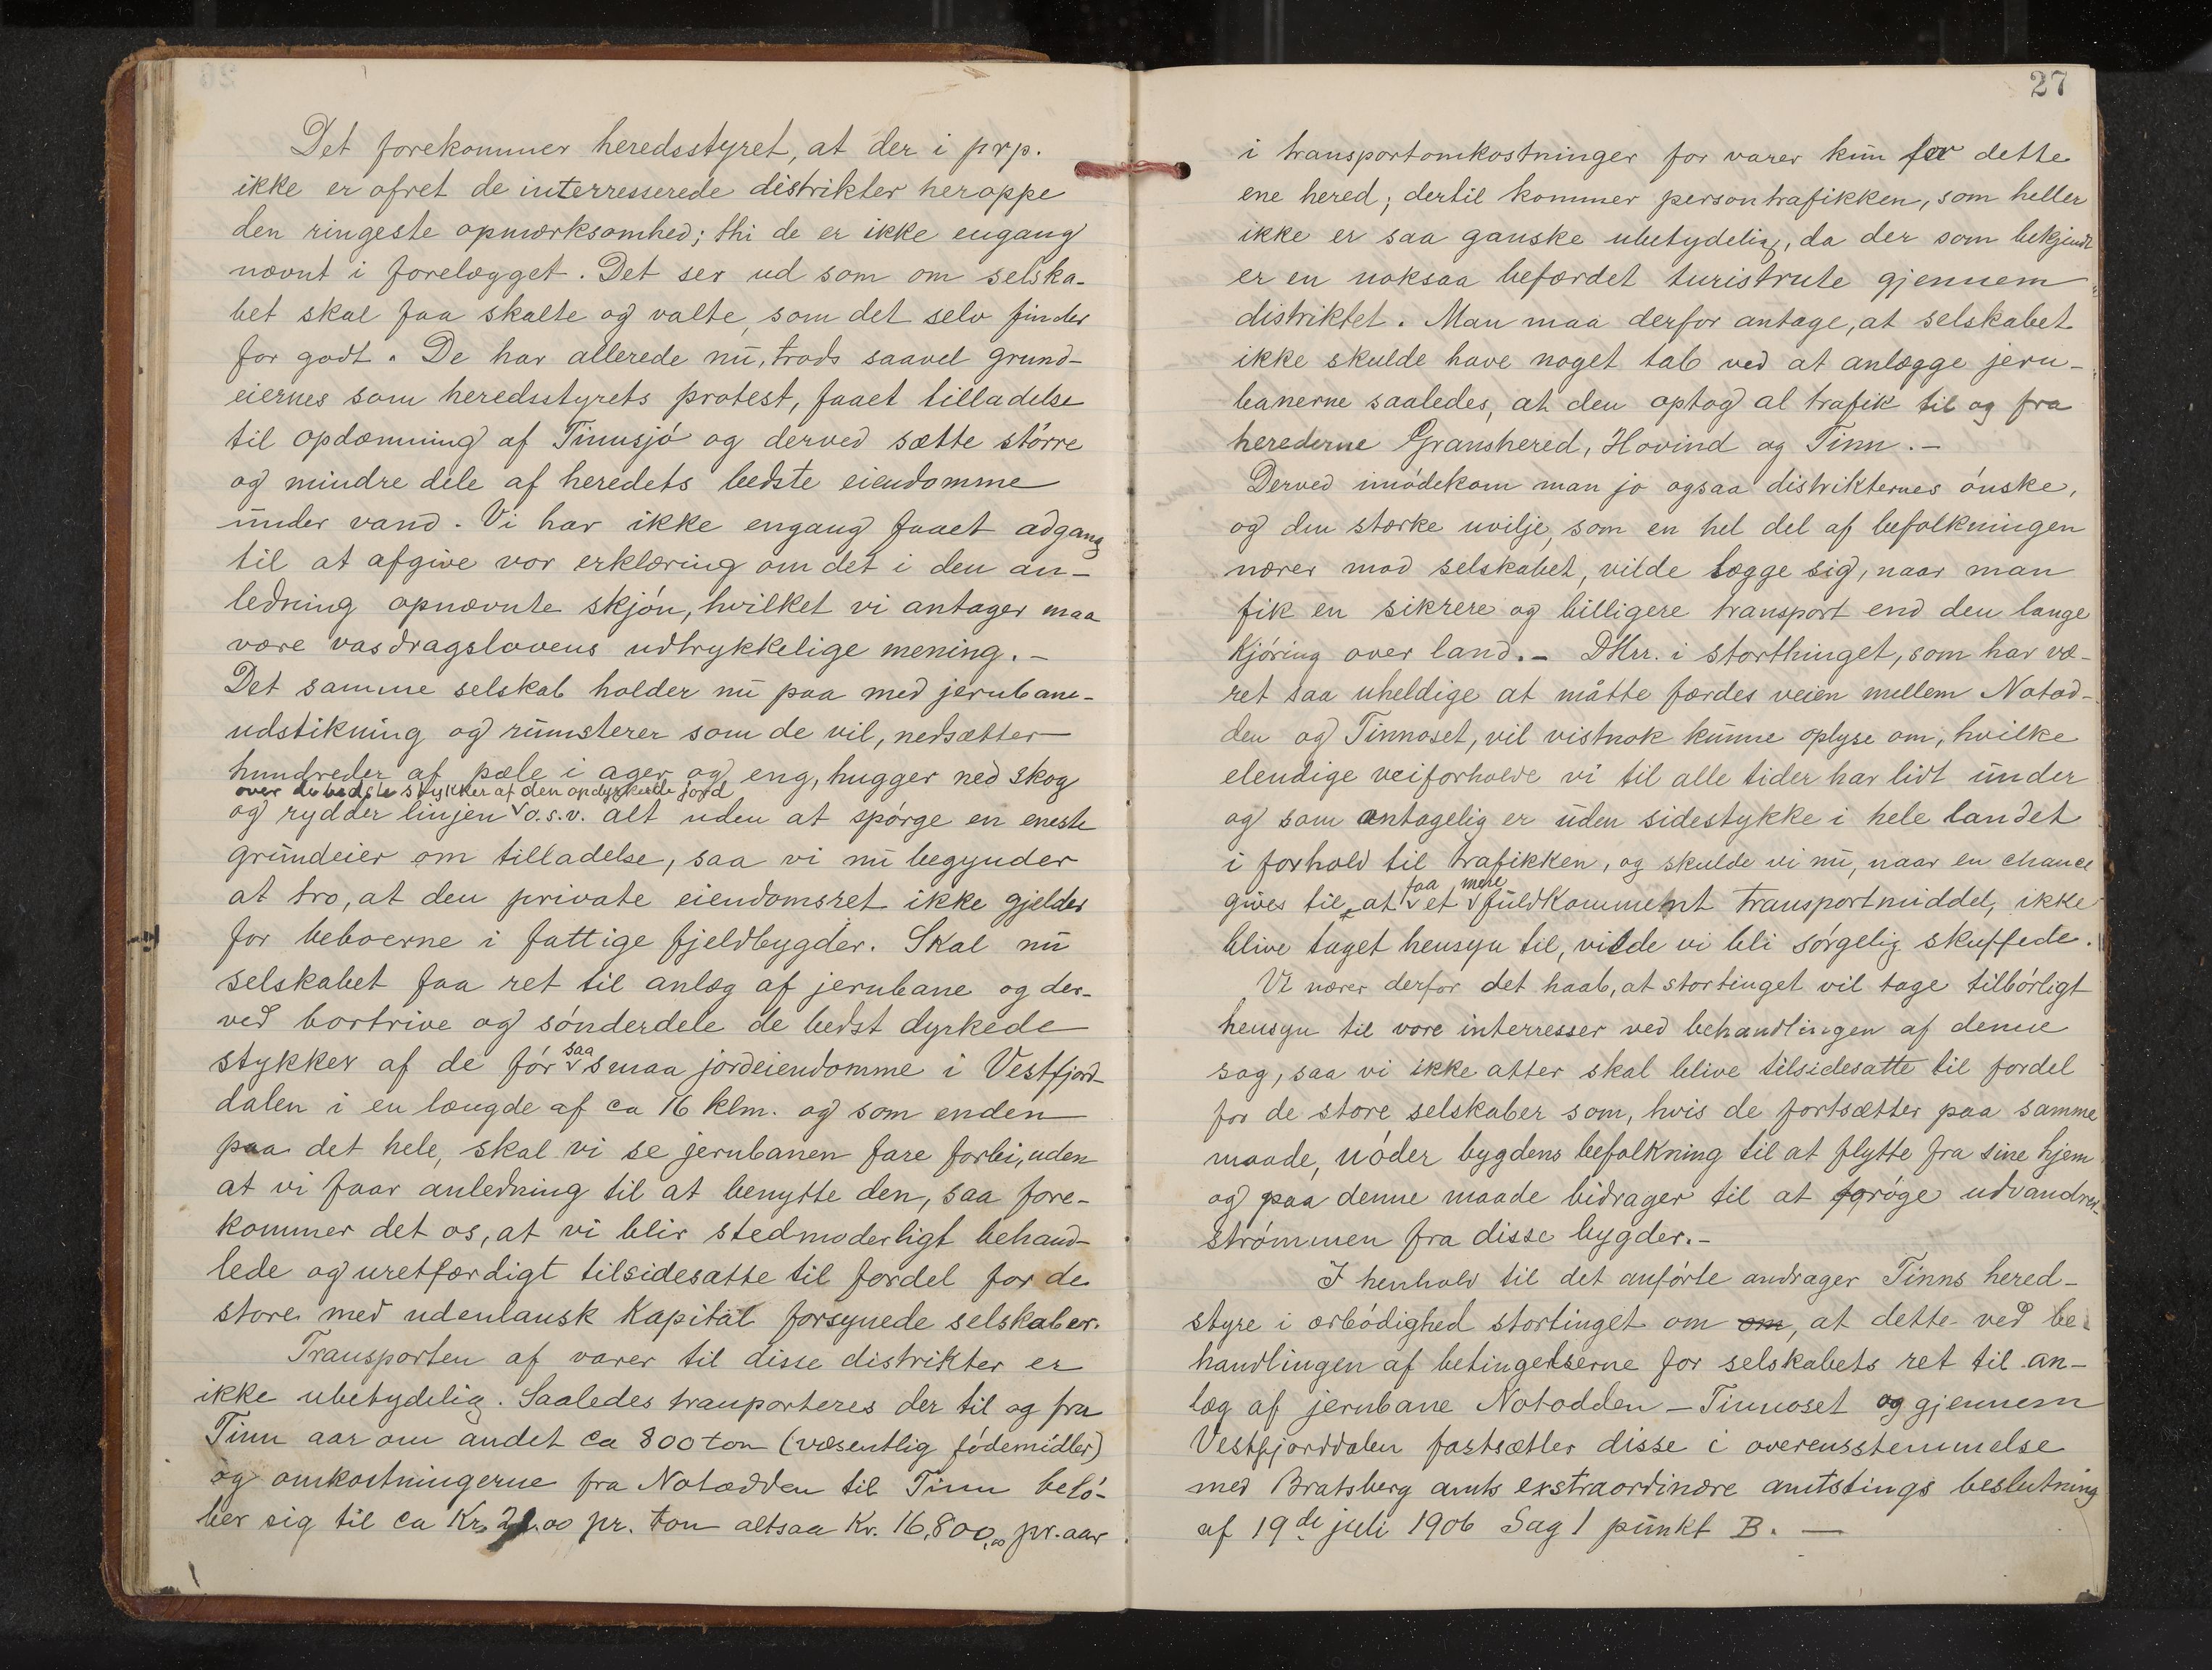 Det forekommer heredsstyret, at der i prp.
ikke er ofret de interresserede distrikter heroppe
den ringeste opmærksomhed; thi de er ikke engang
nævnt i forelægget. Det ser ud som om selska-
bet skal faa skalte og valte, som det selv finder
for godt. De har allerede nu, trods saavel grund-
eiernes som heredsstyrets protest, faaet tilladelse
til opdæmning af Tinnsjó og derved sætte större
og mindre dele af heredets bedste eiendomme
under vand. Vi har ikke engang faaet adgang
til at afgive vor erklæring om det i den an-
ledning opnævnte skjón, hvilket vi antager maa
være vasdragslovens udtrykkelige mening. —
Det samme selskab holder nu paa med jernbane-
udstikning og rumsterer som de vil, nedsætter
hundreder af pæle i ager og eng, hugger ned skog
over de bedste stykker af den opdyrkede jord
og rydder linjen v o.s.v. alt uden at spórge en eneste
grundeier om tilladelse, saa vi nu begynder
at tro, at den private eiendomsret ikke gjelder
for beboerne i fattige fjeldbygder. Skal nu
selskabet faa ret til anlæg af jernbane og der-
ved bortrive og sónderdele de bedst dyrkede
saa
stykker af de fór v smaa jordeiendomme i Vestfjord-
dalen i en længde af ca 16 klm. og som enden
paa det hele, skal vi se jernbanen fare forbi, uden
at vi faar anledning til at benytte den, saa fore-
kommer det os, at vi blir stedmoderligt behand-
lede og uretfærdigt tilsidesatte til fordel for de
store med udenlansk Kapital forsynede selskaber.
Transporten af varer til disse distrikter er
ikke ubetydelig. Saaledes tranporteres der til og fra
Tinn aar om andet ca 800 ton (væsentlig födemidler)
og omkostningerne fra Notodden til Tinn beló-
ber sig til ca Kr. 21.00 pr. ton altsaa Kr. 16,800,00 pr. aar
27
i transportomkostninger for varer kun for dette
ene hered; dertil kommer persontrafikken, som heller
ikke er saa ganske ubetydelig, da der som bekjendt
er en noksaa befærdet turistrute gjennem
distriktet. Man maa derfor antage, at selskabet
ikke skulde have noget tab ved at anlægge jern-
banerne saaledes, at den optog al trafik til og fra
herederne Granshered, Hovind og Tinn. —
Derved imódekom man jo ogsaa distrikternes ónske,
og den stærke uvilje, som en hel del af befolkningen
nærer mod selskabet, vilde lægge sig, naar man
fik en sikrere og billigere transport end den lange
Kjóring over land. — DHrr. i storthinget, som har væ-
ret saa uheldige at måtte færdes veien mellem Notod-
den og Tinnoset, vil vistnok kunne oplyse om, hvilke
elendige veiforholde vi til alle tider har lidt under
og som antagelig er uden sidestykke i hele landet
i forhold til trafikken, og skulde vi nu, naar en chance
faa mere
gives til at v et v fuldkomment transportmiddel, ikke
blive taget hensyn til, vilde vi bli sórgelig skuffede.
Vi nærer derfor det haab, at stortinget vil tage tilbórligt
hensyn til vore interresser ved behandlingen af denne
sag, saa vi ikke atter skal blive tilsidesatte til fordel
for de store selskaber som, hvis de fortsætter paa samme
maade, nóder bygdens befolkning til at flytte fra sine hjem
og paa denne maade bidrager til at forøge udvandrer-
strómmen fra disse bygder. —
I henhold til det anfórte andrager Tinns hered-
styre i ærbódighed stortinget om om, at dette ved be-
handlingen af betingelserne for selskabets ret til an-
læg af jernbane Notodden — Tinnoset og gjennem
Vestfjorddalen fastsætter disse i overensstemmelse
med Bratsberg amts exstraordinære amtstings beslutning
af 19de juli 1906 Sag 1 punkt B. —